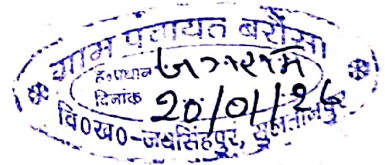 ग्राम पंचायत बरौंसा
ह०प्रधान जगराम
दिनांक 20/01/26
वि०ख०-जयसिंहपुर, सुलतानपुर